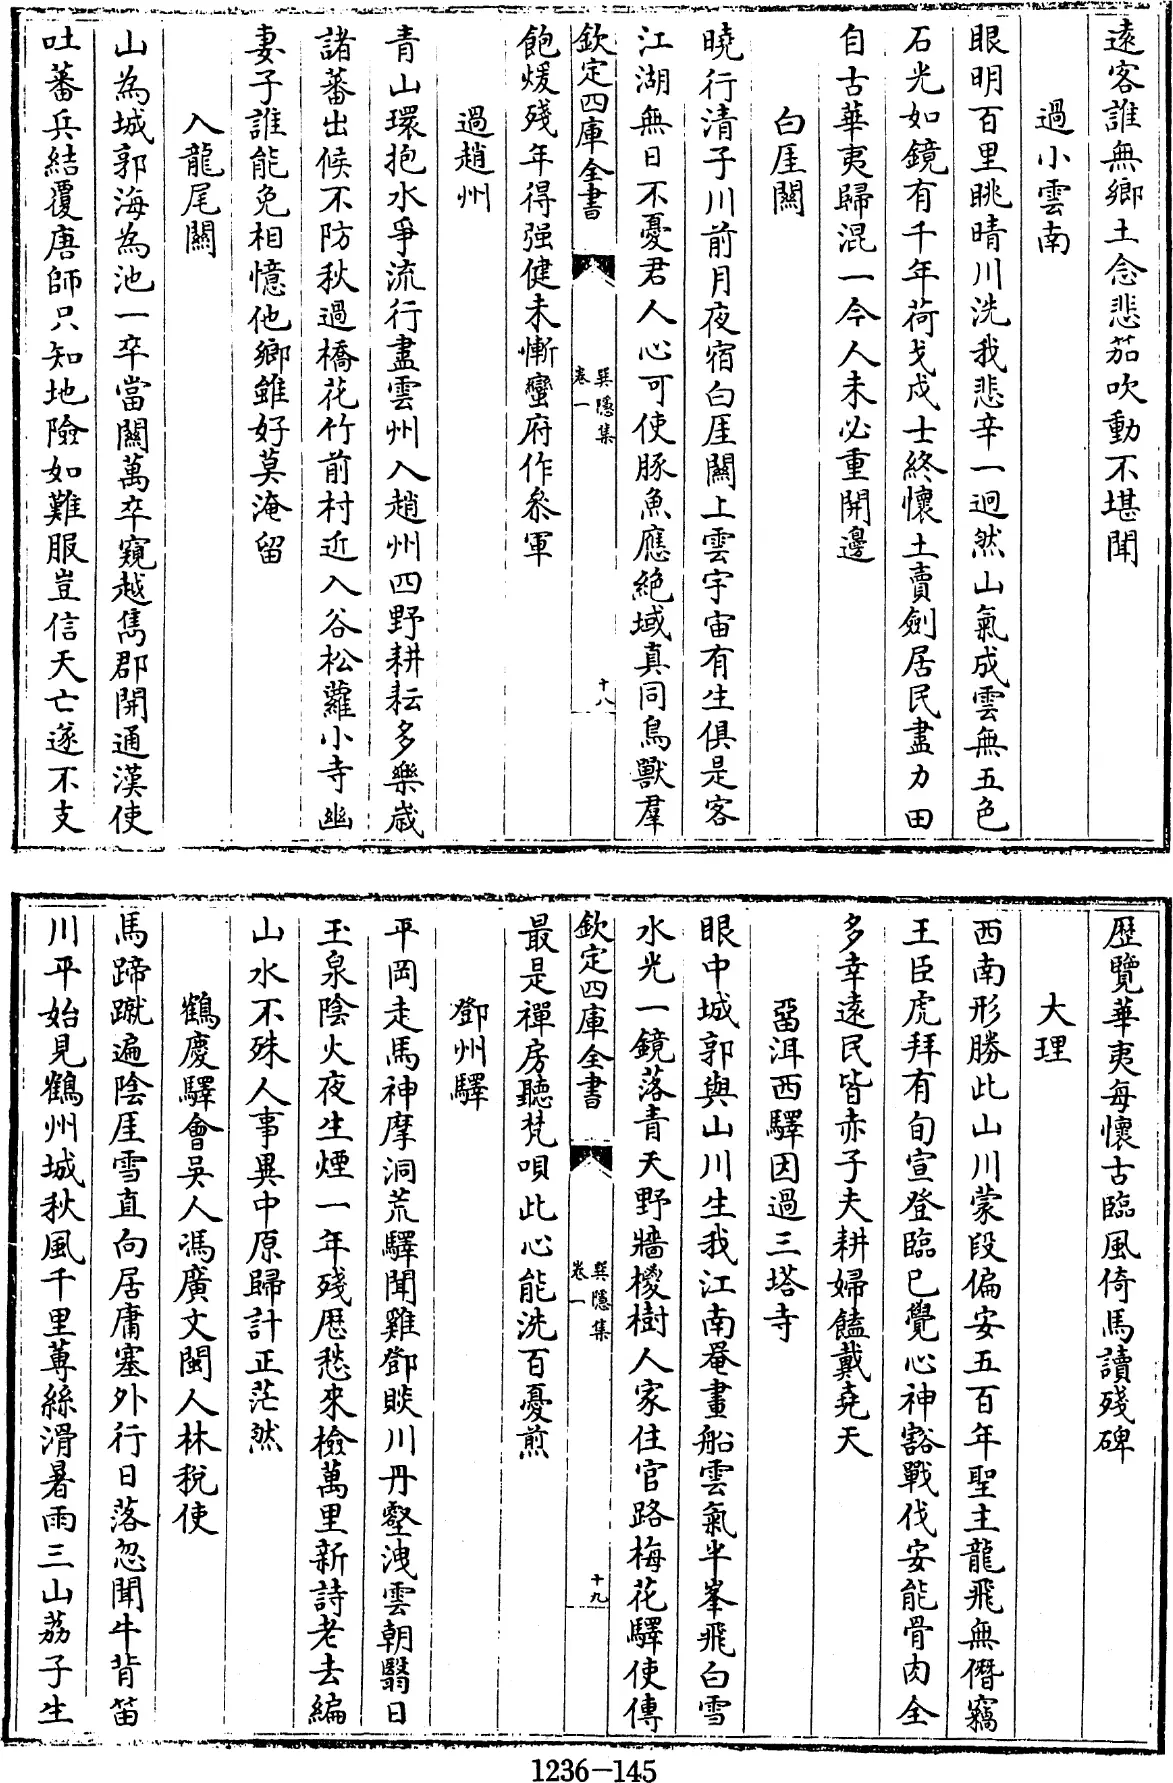 遠客誰無鄉土念悲茄吹動不堪聞
過小雲南
眼明百里眺晴川洗我悲辛一迥然山氣成雲無五色
石光如鏡有千年荷戈戍士終懷土賣劍居民盡力田
自古華夷歸混一今人未必重開邊
白厓關
曉行清子川前月夜宿白厓關上雲宇宙有生俱是客
江湖無日不憂君人心可使豚魚應絶域真同鳥獸羣
欽定四庫全書
巽隱集
卷一
十八
飽煖殘年得强健未慚蠻府作叅軍
過趙州
青山環抱水爭流行盡雲州入趙州四野耕耘多樂嵗
諸蕃出候不防秋過橋花竹前村近入谷松蘿小寺幽
妻子誰能免相憶他鄉雖好莫淹留
入龍尾關
山為城郭海為池一卒當關萬卒窺越雋郡開通漢使
吐蕃兵結覆唐師只知地險如難服豈信天亡遂不支
歴覽華夷每懷古臨風倚馬讀殘碑
大理
西南形勝此山川蒙段偏安五百年聖主龍飛無僭竊
王臣虎拜有旬宣登臨已覺心神豁戰伐安能骨肉全
多幸遠民皆赤子夫耕婦饁戴堯天
宿洱西驛因過三塔寺
眼中城郭與山川生我江南罨畫船雲氣半峯飛白雪
水光一鏡落青天野牆椶樹人家住官路梅花驛使傳
欽定四庫全書
巽隱集
卷一
十九
最是禪房聽梵唄此心能洗百憂煎
鄧州驛
平岡走馬神摩洞荒驛聞雞鄧賧川丹壑洩雲朝翳日
玉泉陰火夜生煙一年殘厯愁來檢萬里新詩老去編
山水不殊人事異中原歸計正茫然
鶴慶驛會吳人馮廣文閩人林稅使
馬蹄蹴遍陰厓雪直向居庸塞外行日落忽聞牛背笛
川平始見鶴州城秋風千里蓴絲滑暑雨三山荔子生
1236-145